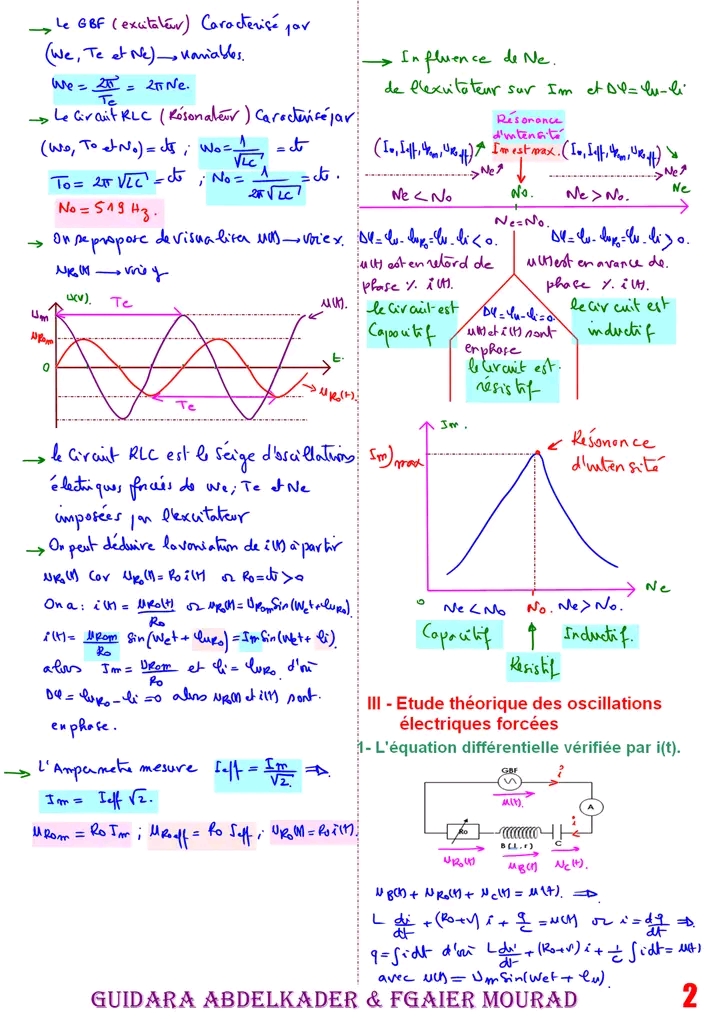 → Le GBF (excitateur) Caractérisé par
(We, Te et Ne) → variables.
We = 2π/Te = 2πNe.
→ Le Circuit RLC (Résonateur) Caractérisé par
(W0, T0 et N0) = cts ; W0 = 1/√LC = ct
T0 = 2π√LC = ct ; N0 = 1/2π√LC = ct.
N0 = 519 Hz.
→ On se propose de visualiser u(t) → voie x
uR0(t) → voie y
u(V).
Te
u(t).
Um
URom
0
t.
uR0(t).
Te
→ le Circuit RLC est le siège d'oscillations
électriques forcées de We, Te et Ne
imposées par l'excitateur
→ On peut déduire la variation de i(t) à partir
uR0(t) car uR0(t) = R0 i(t) or R0 = ct > 0
On a : i(t) = uR0(t)/R0 or uR0(t) = URom Sin(Wet + φuR0).
i(t) = URom/R0 Sin(Wet + φuR0) = Im Sin(Wet + φi)
alors Im = URom/R0 et φi = φuR0 d'où
Δφ = φuR0 - φi = 0 alors uR0(t) et i(t) sont
en phase.
→ L'Ampermetre mesure Ieff = Im/√2 ⇒
Im = Ieff √2.
URom = R0 Im ; UR0eff = R0 Ieff ; uR0(t) = R0 i(t).
→ Influence de Ne
de l'excitateur sur Im et Δφ = φu - φi
Résonance
d'intensité
Im est max.
Ne ↗
Ne ↗
Ne < N0
N0
Ne > N0.
Ne
Ne = N0.
Δφ = φu - φuR0 = φu - φi < 0.
Δφ = φu - φuR0 = φu - φi > 0.
u(t) est en retard de
phase % i(t).
u(t) est en avance de
phase % i(t).
le Circuit est
Capacitif
Δφ = φu - φi = 0
u(t) et i(t) sont
en phase
le Circuit est
résistif
le Circuit est
inductif
Im.
Im)max
Résonance
d'intensité
0
Ne
Ne < N0
N0
Ne > N0.
Capacitif
Inductif.
Résistif
III - Etude théorique des oscillations
électriques forcées
1- L'équation différentielle vérifiée par i(t).
GBF
i
u(t).
A
i
Ro
B(L,r)
C
uR0(t)
uB(t)
uC(t).
uB(t) + uR0(t) + uC(t) = u(t). ⇒
L di/dt + (R0+r) i + q/C = u(t) or i = dq/dt ⇒
q = ∫i dt d'où L di/dt + (R0+r) i + 1/C ∫i dt = u(t)
avec u(t) = Um Sin(Wet + φu).
GUIDARA ABDELKADER & FGAIER MOURAD
2